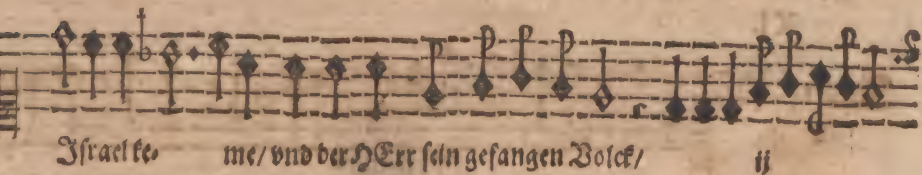 Israel ke⸗ me/ vnd der HErr sein gefangen Volck/ ij